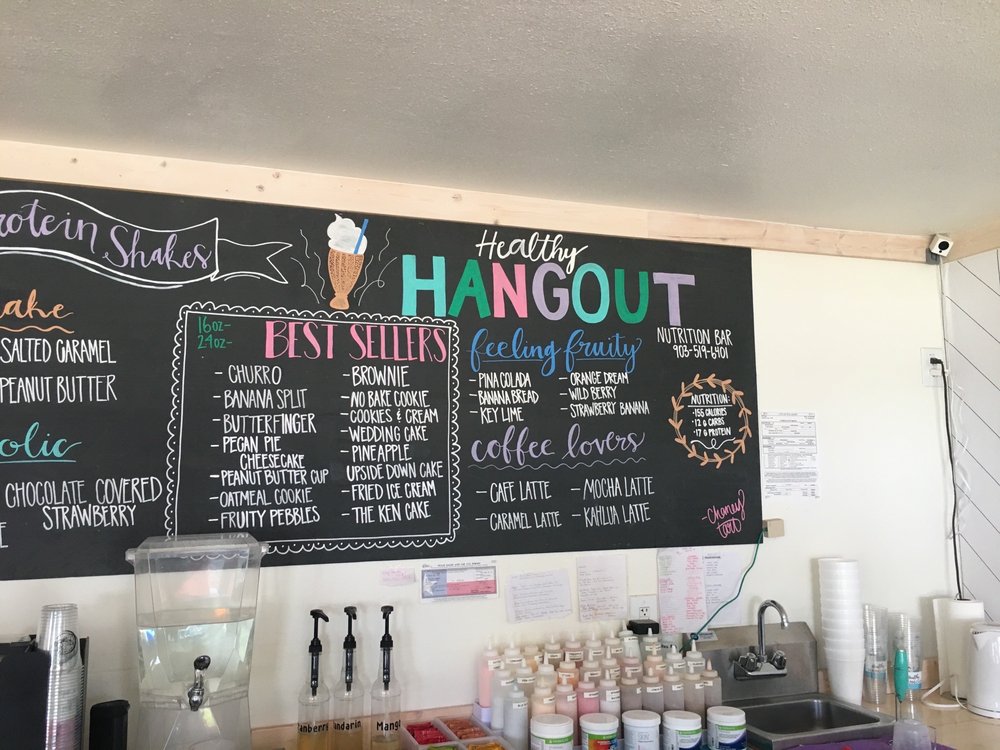 Protein Shakes
Healthy
HANGOUT
NUTRITION BAR
903-519-6401
SALTED CARAMEL
PEANUT BUTTER
CHOCOLATE COVERED
STRAWBERRY
16oz-
24oz-
BEST SELLERS
- CHURRO
- BANANA SPLIT
- BUTTERFINGER
- PECAN PIE
CHEESECAKE
- PEANUT BUTTER CUP
- OATMEAL COOKIE
- FRUITY PEBBLES
- BROWNIE
- NO BAKE COOKIE
- COOKIES & CREAM
- WEDDING CAKE
- PINEAPPLE
UPSIDE DOWN CAKE
- FRIED ICE CREAM
- THE KEN CAKE
feeling fruity
- PINA COLADA
- BANANA BREAD
- KEY LIME
- ORANGE DREAM
- WILD BERRY
- STRAWBERRY BANANA
coffee lovers
- CAFE LATTE
- CARAMEL LATTE
- MOCHA LATTE
- KAHLUA LATTE
NUTRITION:
• 155 CALORIES
• 12 G CARBS
• 17 G PROTEIN
Mango